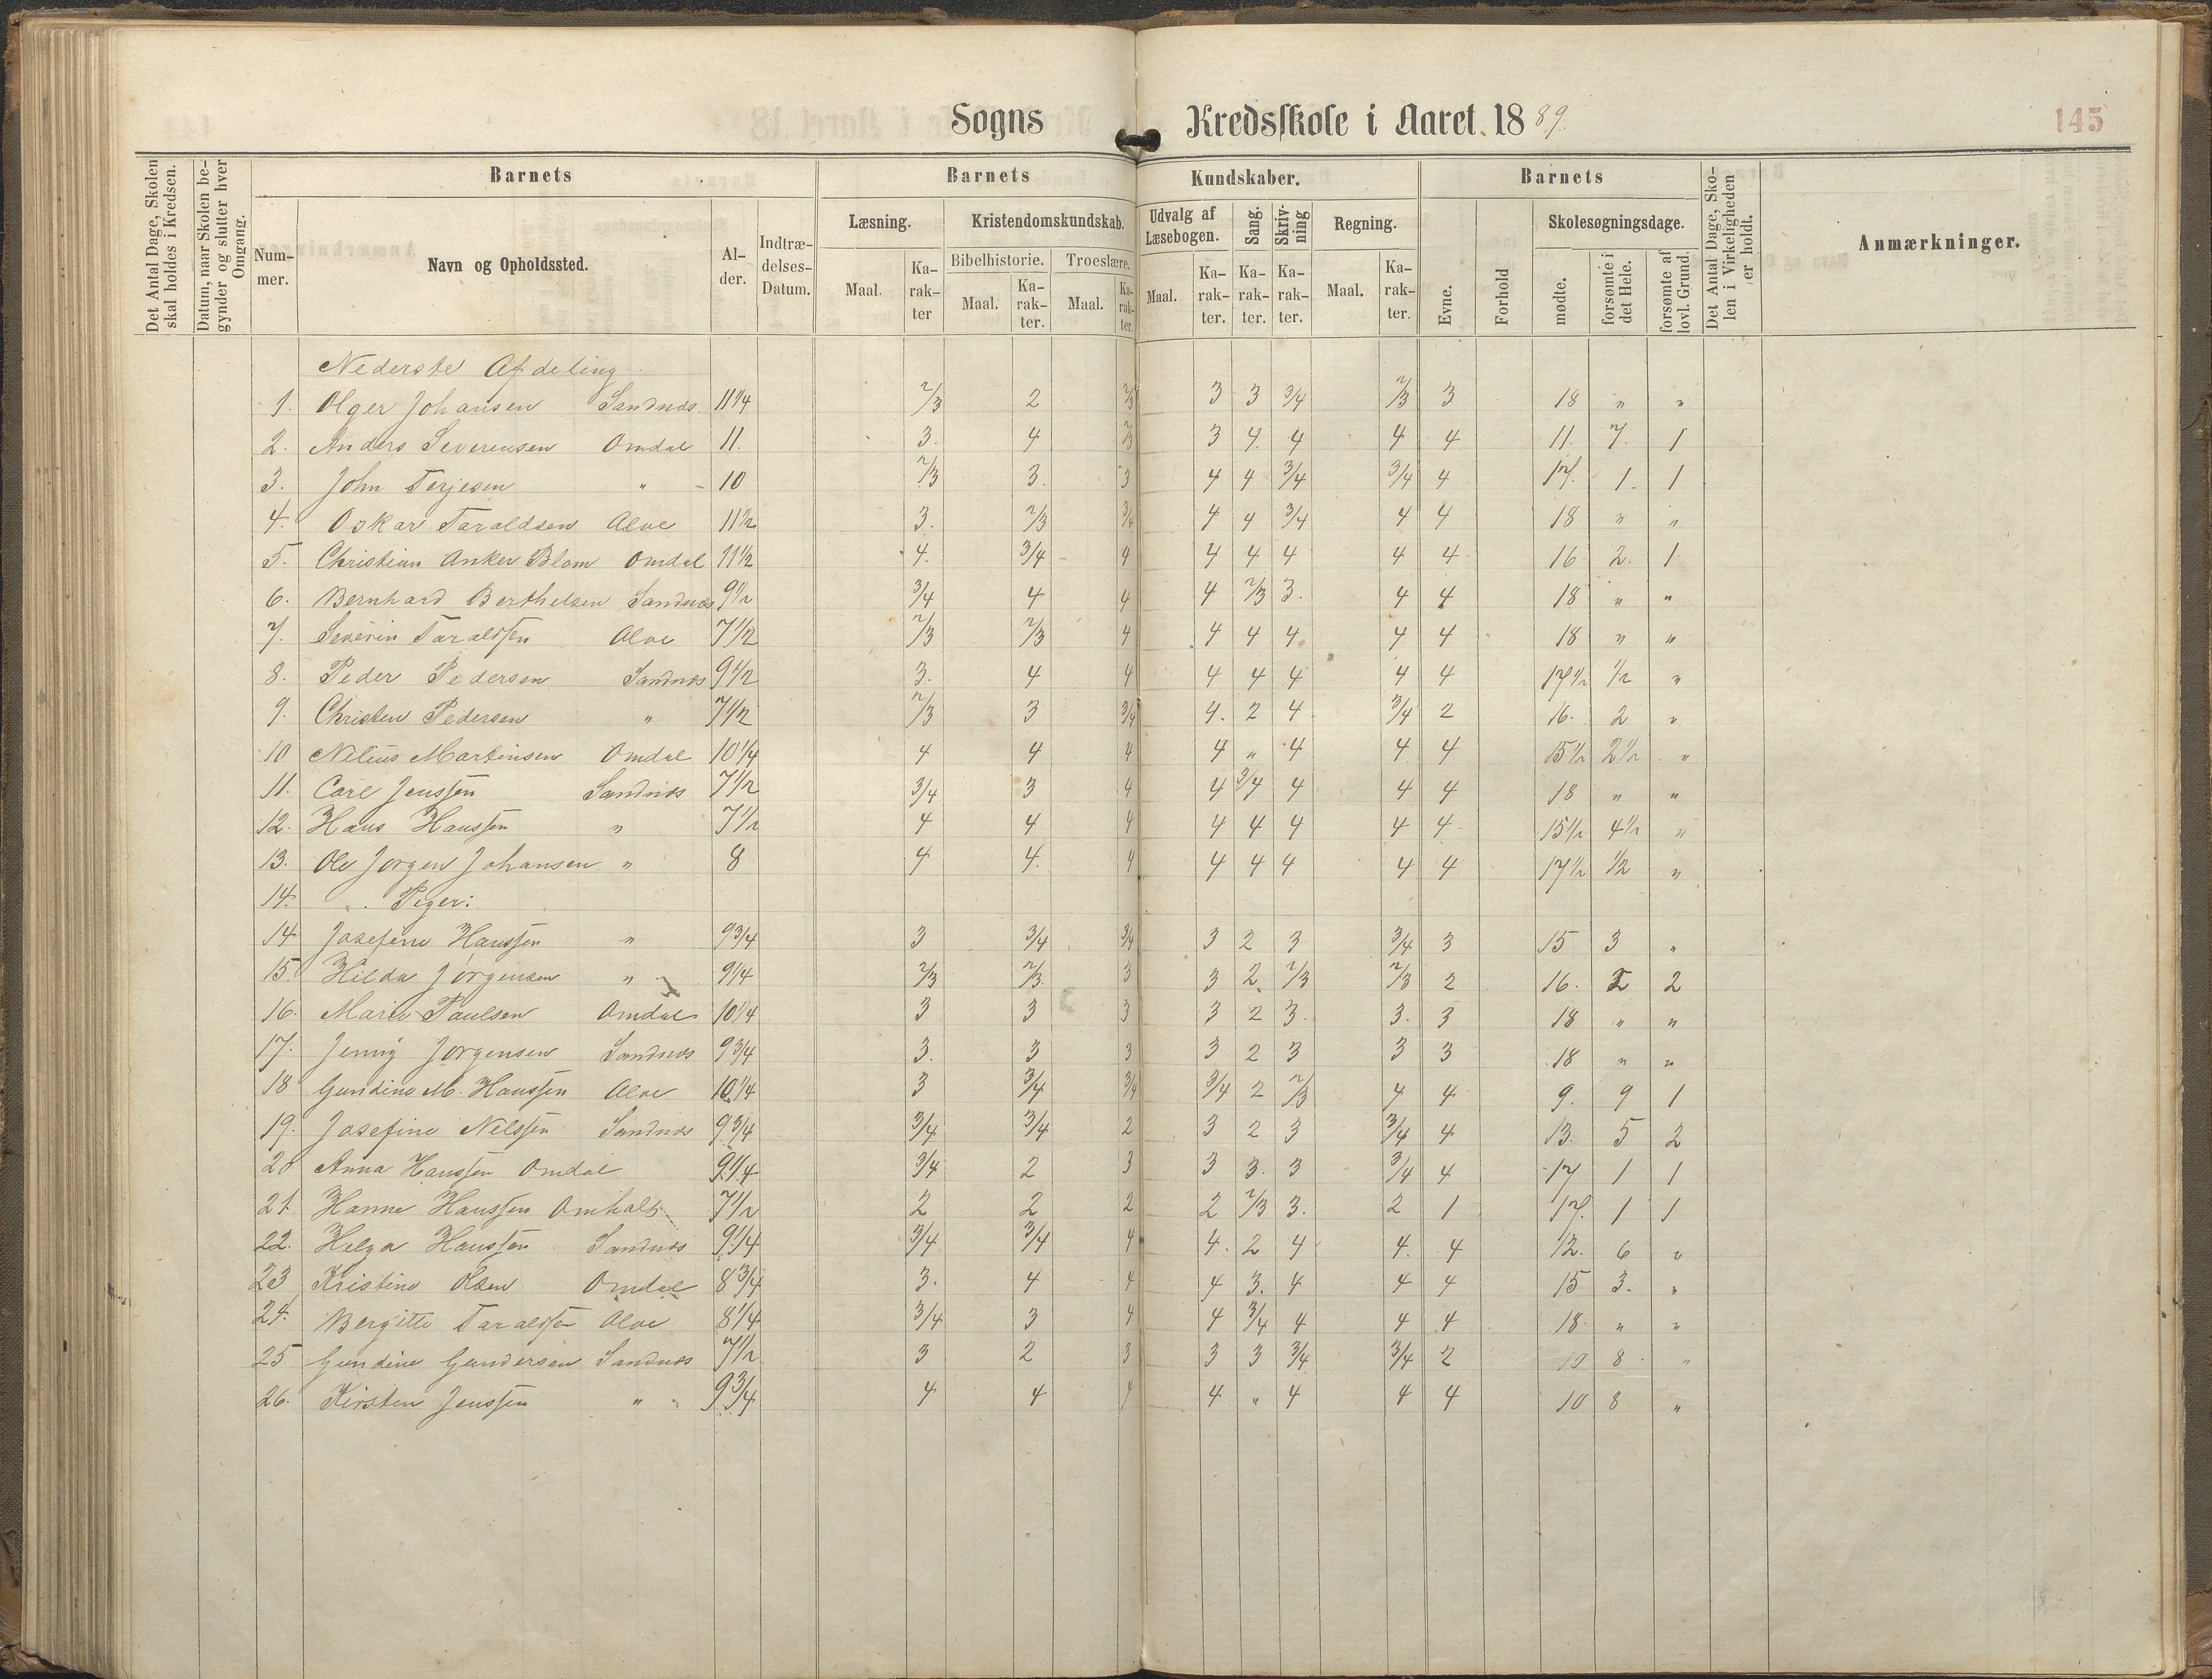 Sogns Kredsskole i Aaret 1889. 145
Det Antal Dage, Skolen skal holdes i Kredsen.
Datum, naar Skolen begynder og slutter hver Omgang.
Barnets Barnets Kundskaber. Barnets
Det Antal Dage, Skolen i Virkeligheden er holdt.
Anmærkninger.
Nummer. Navn og Opholdssted. Alder. Indtrædelses-Datum.
Læsning. Kristendomskundskab. Udvalg af Læsebogen. Sang. Skrivning Regning. Evne. Forhold Skolesøgningsdage.
Bibelhistorie. Troeslære.
Maal. Karakter Maal. Karakter. Maal. Karakter. Maal. Karakter. Karakter. Karakter. Maal. Karakter. mødte. forsømte i det Hele. forsømte af lovl. Grund.
Nederste Afdeling
1. Olger Johansen Sandnæs 11 1/4 2/3 2 2/3 3 3 3/4 2/3 3 18 " "
2. Anders Severensen Omdal 11. 3. 4 2/3 3 4. 4 4 4 11. 7. 1
3. John Terjesen " 10 2/3 3. 3 4 4 3/4 3/4 4 17. 1. 1
4. Oskar Taraldsen Alve 11 1/2 3. 2/3 3/4 4 4 3/4 4 4 18 " "
5. Christian Anker Blom Omdal 11 1/2 4. 3/4 4 4 4 4 4 4 16 2. 1
6. Bernhard Berthelsen Sandnæs 9 1/2 3/4 4 4 4 2/3 3. 4 4 18 " "
7. Severin Taraldsen Alve 7 1/2 2/3 2/3 4 4 4 4 4 4 18 " "
8. Peder Pedersen Sandnæs 9 1/2 3. 4 4 4 4 4 4 4 17 1/2 1/2 "
9. Christen Pedersen " 7 1/2 2/3 3 3/4 4. 2 4 3/4 2 16. 2 "
10 Nelius Martinsen Omdal 10 1/4 4 4 4 4 " 4 4 4 15 1/2 2 1/2 "
11. Carl Jenssen Sandnæs 7 1/2 3/4 3 4 4 3/4 4 4 4 18 " "
12. Hans Hanssen " 7 1/2 4 4 4 4 4 4 4 4 15 1/2 4 1/2 "
13. Ole Jørgen Johansen " 8 4 4. 4 4 4 4 4 4 17 1/2 1/2 "
14. Piger:
14 Josefine Hanssen " 9 3/4 3 3/4 3/4 3 2 3 3/4 3 15 3 "
15. Hilda Jørgensen " 9 1/4 2/3 2/3 3 3 2. 2/3 2/3 2 16. 2 2
16. Marie Paulsen Omdal 10 1/4 3 3 3 3 2 3. 3. 3 18 " "
17. Jenny Jørgensen Sandnæs 9 3/4 3. 3 3 3 2 3 3 3 18 " "
18 Gundine M. Hanssen Alve 10 1/4 3 3/4 3/4 3/4 2 2/3 4 4 9. 9 1
19. Josefine Nelssen Sandnæs 9 3/4 3/4 3/4 2 3 2 3 3/4 4 13. 5 2
20 Anna Hanssen Omdal 9 1/4 3/4 2 3 3 3. 3 3/4 4 17 1 1
21. Hanne Hanssen Omholt 7 1/2 2 2 2 2 2/3 3. 2 1 17. 1 1
22. Helga Hanssen Sandnæs 9 1/4 3/4 3/4 4 4. 2 4 4. 4 12. 6 "
23 Kristine Olsen Omdal 8 3/4 3. 4 4 4 3. 4 4 4 15 3. "
24. Bergitte Taraldsen Alve 8 1/4 3/4 3 4 4 3/4 4 4 4 18. " "
25 Gundine Gundersen Sandnæs 7 1/2 3 2 3 3 3 3/4 3/4 2 10 8 "
26. Kirsten Jenssen " 9 3/4 4 4 4 4 " 4 4 4 10 8 "